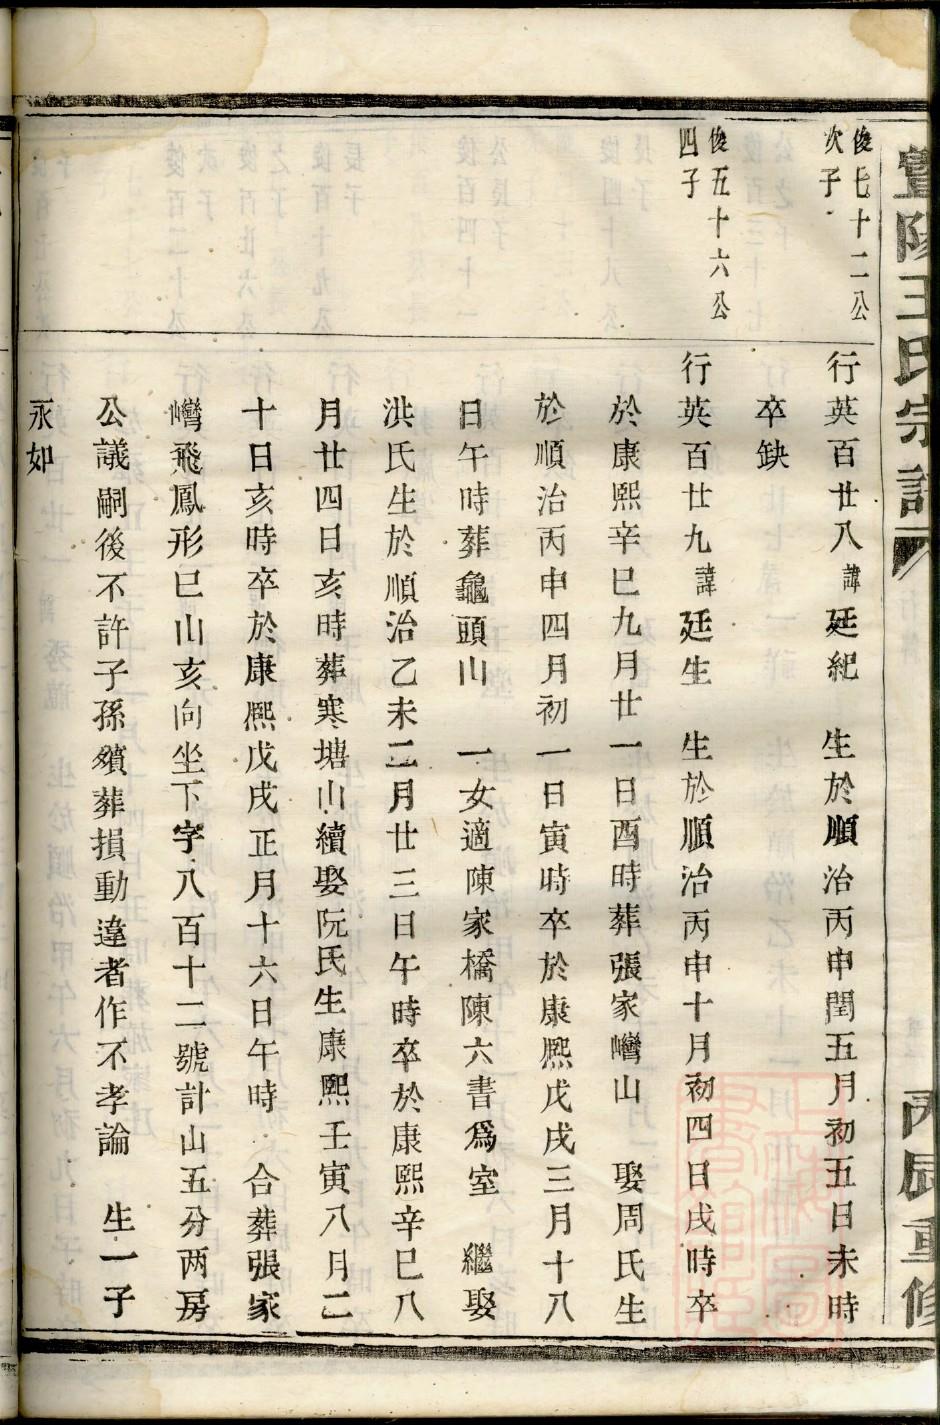 暨陽王氏宗譜
丙辰重修
俊七十二公
次子
行英百廿八諱廷紀 生於順治丙申閏五月初五日未時
卒缺
俊五十六公
四子
行英百廿九諱廷生 生於順治丙申十月初四日戌時卒
於康熙辛巳九月廿一日酉時葬張家巒山 娶周氏生
於順治丙申四月初一日寅時卒於康熙戊戌三月十八
日午時葬龜頭山 一女適陳家橋陳六書爲室 繼娶
洪氏生於順治乙未二月廿三日午時卒於康熙辛巳八
月廿四日亥時葬寒塘山續娶阮氏生康熙壬寅八月二
十日亥時卒於康熙戊戌正月十六日午時 合葬張家
巒飛鳳形巳山亥向坐下字八百十二號計山五分两房
公議嗣後不許子孫殯葬損動違者作不孝論 生一子
永如